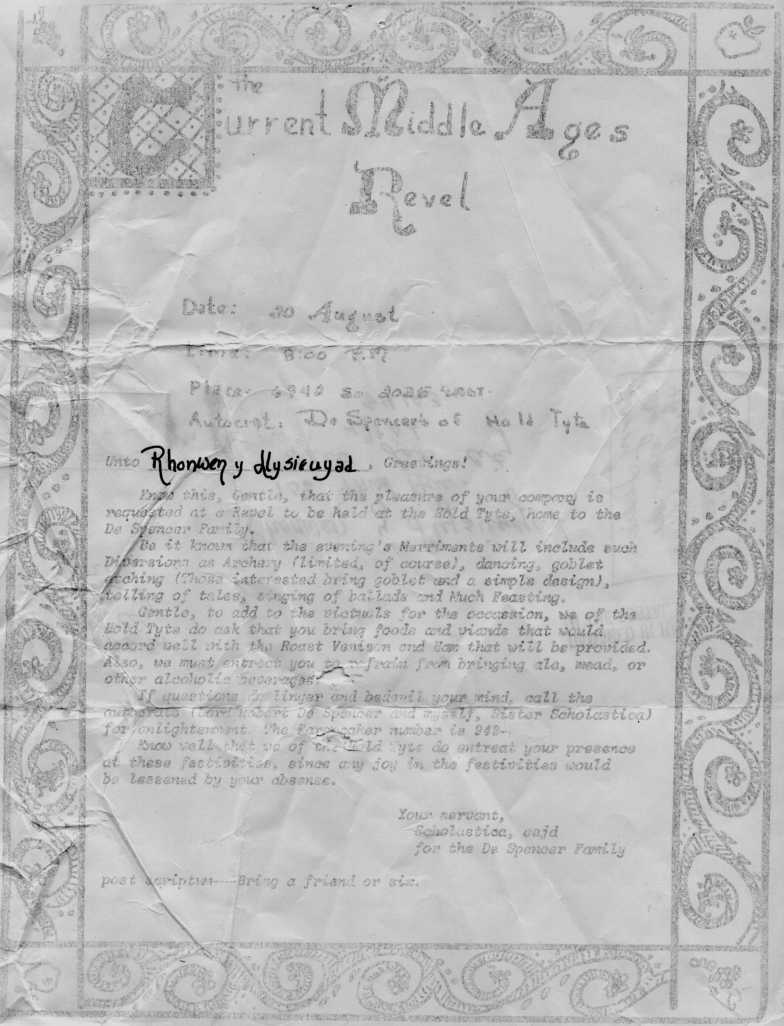 the
Current Middle Ages
Revel
Date: 30 August
Time: 8:00 P.M
Place: 6942 So 2025 West
Autocrat: De Spencer's of Hold Tyte
Unto Rhonwen y Llysieuyad, Greetings!
Know this, Gentle, that the pleasure of your company is
requested at a Revel to be held at the Hold Tyte, home to the
De Spencer Family.
Be it known that the evening's Merriments will include such
Diversions as Archery (limited, of course), dancing, goblet
etching (Those interested bring goblet and a simple design),
telling of tales, singing of ballads and Much Feasting.
Gentle, to add to the victuals for the occassion, we of the
Hold Tyte do ask that you bring foods and viands that would
accord well with the Roast Venison and Ham that will be provided.
Also, we must entreat you to refrain from bringing ale, mead, or
other alcoholic beverages.
If questions do linger and bedevil your mind, call the
autocrats (Lord Robert De Spencer and myself, Sister Scholastica)
for enlightenment. The Farspeaker number is 942-
Know well that we of the Hold Tyte do entreat your presence
at these festivities, since any joy in the festivities would
be lessened by your absense.
Your servant,
Scholastica, osjd
for the De Spencer Family
post scriptum--Bring a friend or six.